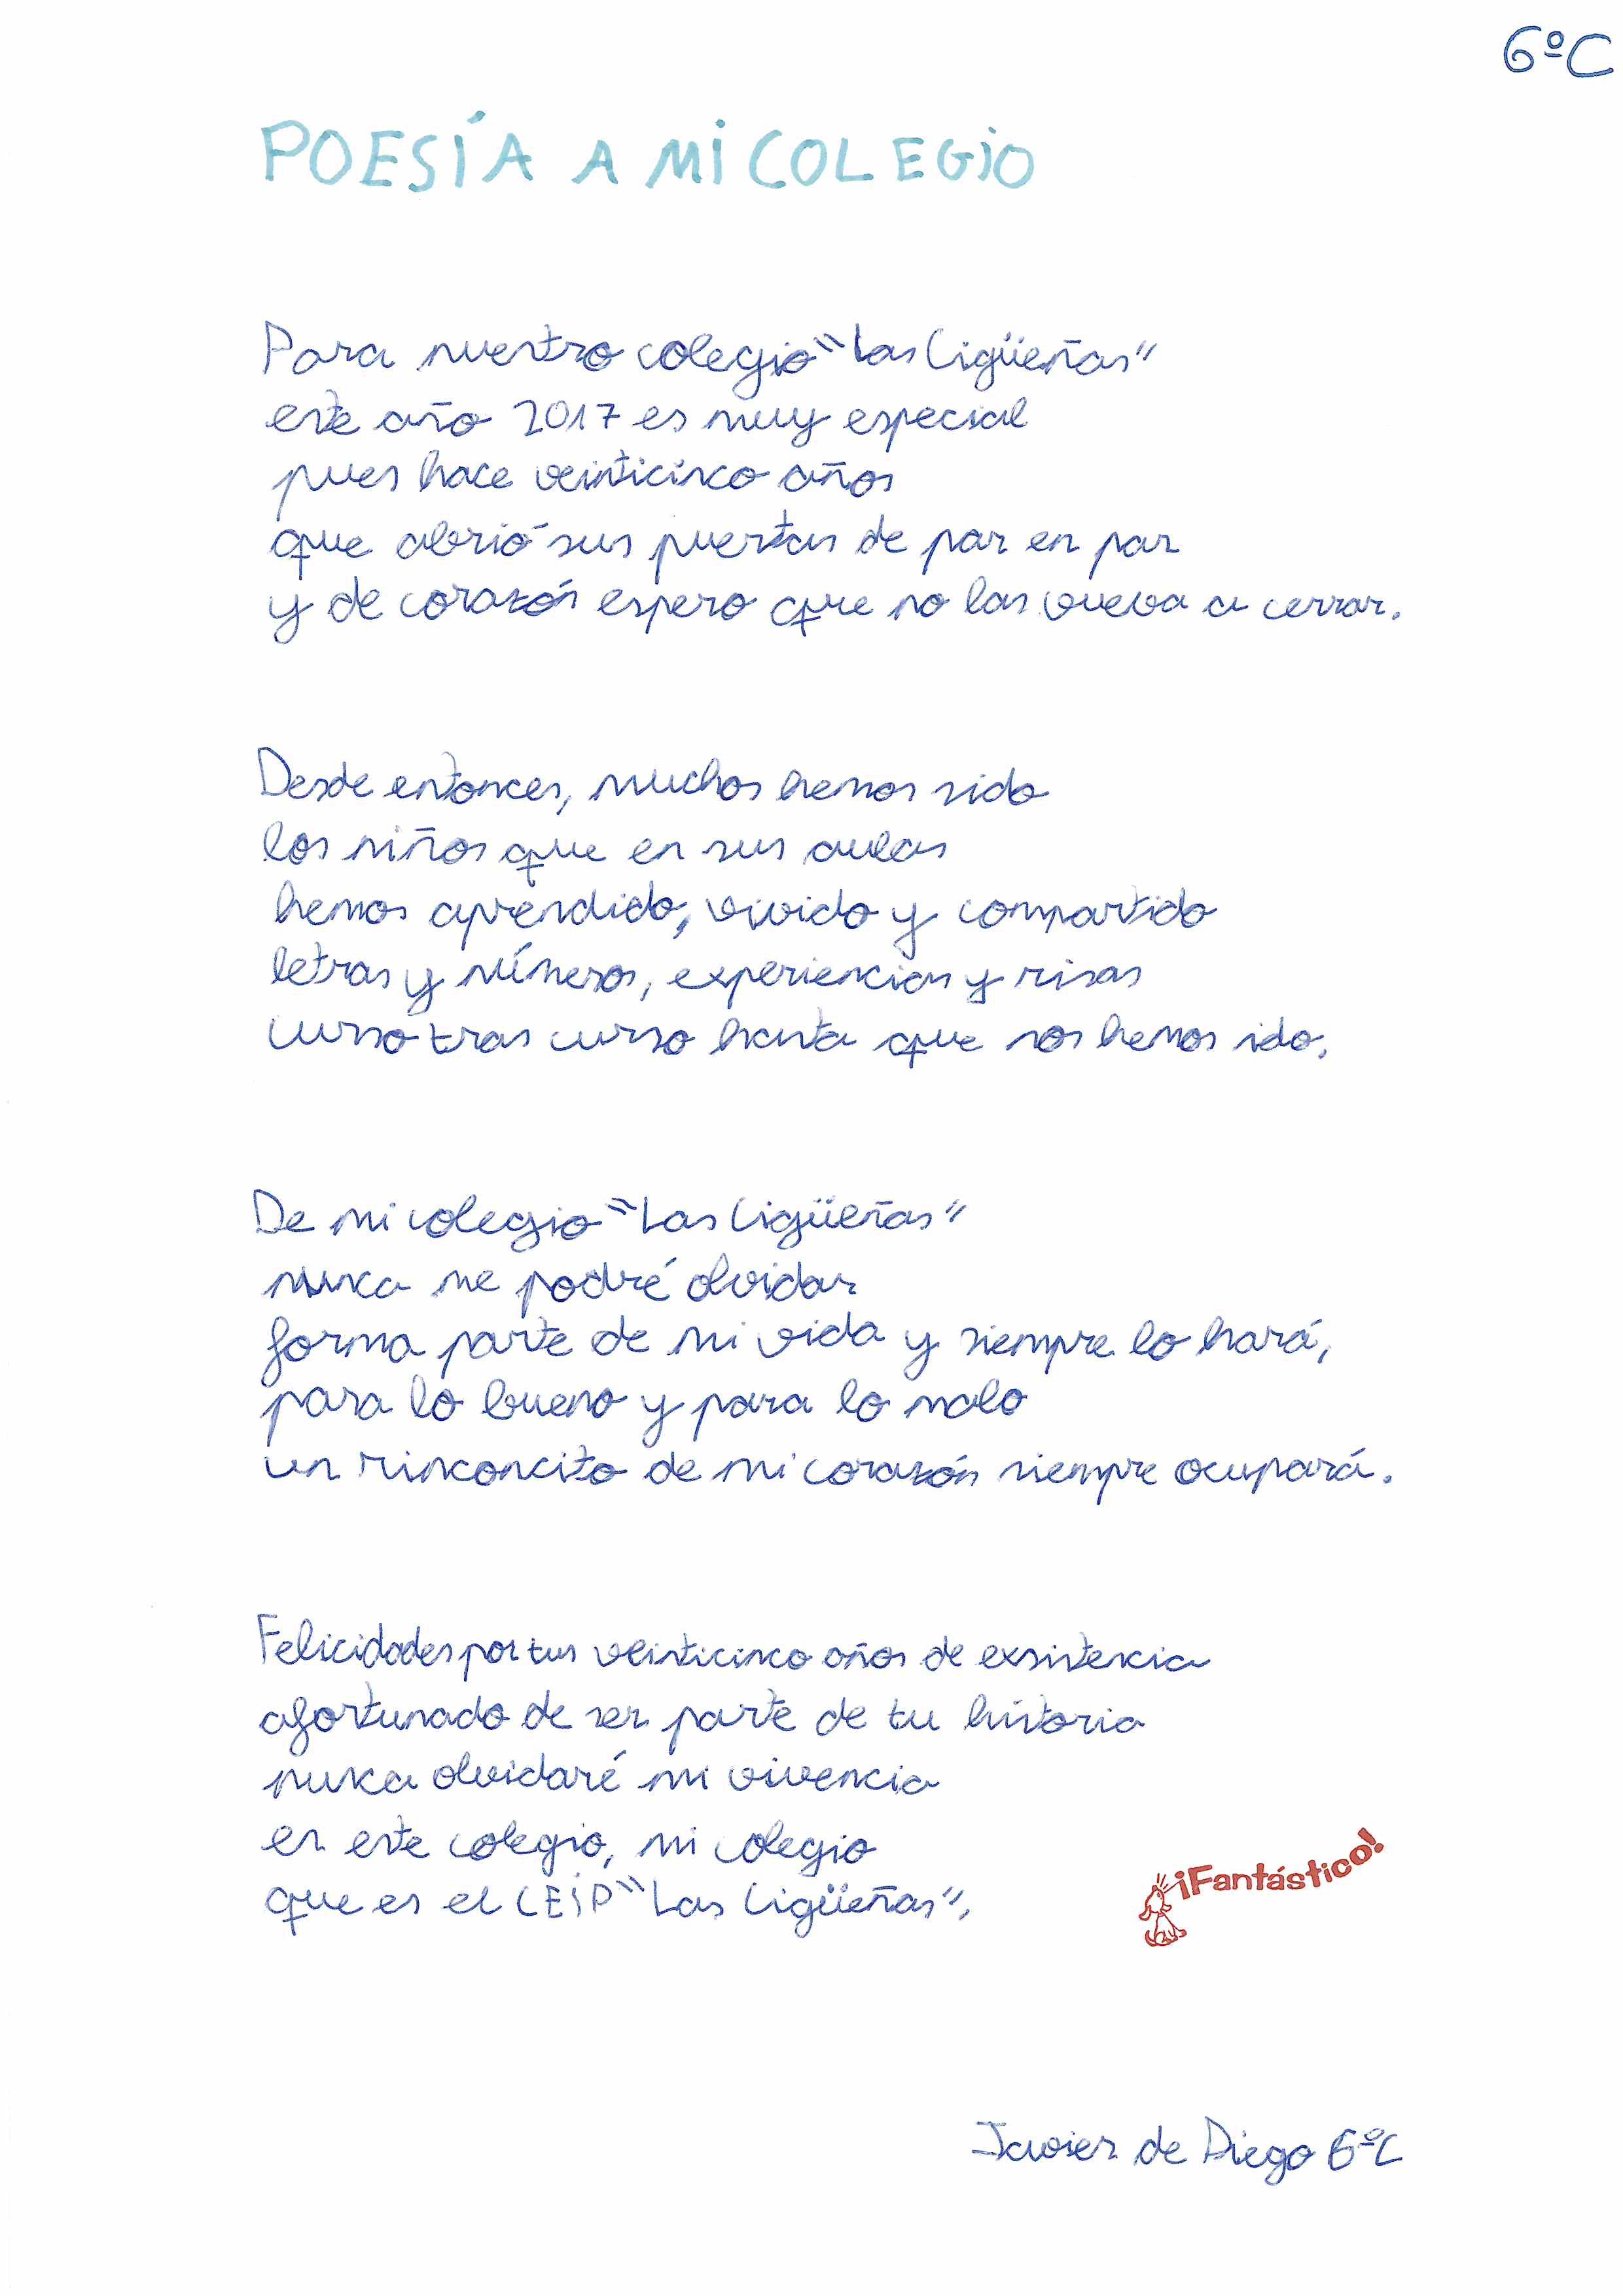 6ºC
POESÍA A MI COLEGIO
Para nuestro colegio "Las Cigüeñas"
este año 2017 es muy especial
pues hace veinticinco años
que abrió sus puertas de par en par
y de corazón espero que no las vueva a cerrar.
Desde entonces, muchos hemos sido
los niños que en sus aulas
hemos aprendido, vivido y compartido
letras y números, experiencias y risas
curso tras curso hasta que nos hemos ido.
De mi colegio "Las Cigüeñas"
nunca me podré olvidar
forma parte de mi vida y siempre lo hará,
para lo bueno y para lo malo
un rinconcito de mi corazón siempre ocupará.
Felicidades por tus veinticinco años de exsistencia
afortunado de ser parte de tu historia
nunca olvidaré mi vivencia
en este colegio, mi colegio
que es el CEIP "Las Cigüeñas".
¡Fantástico!
Javier de Diego 6ºC